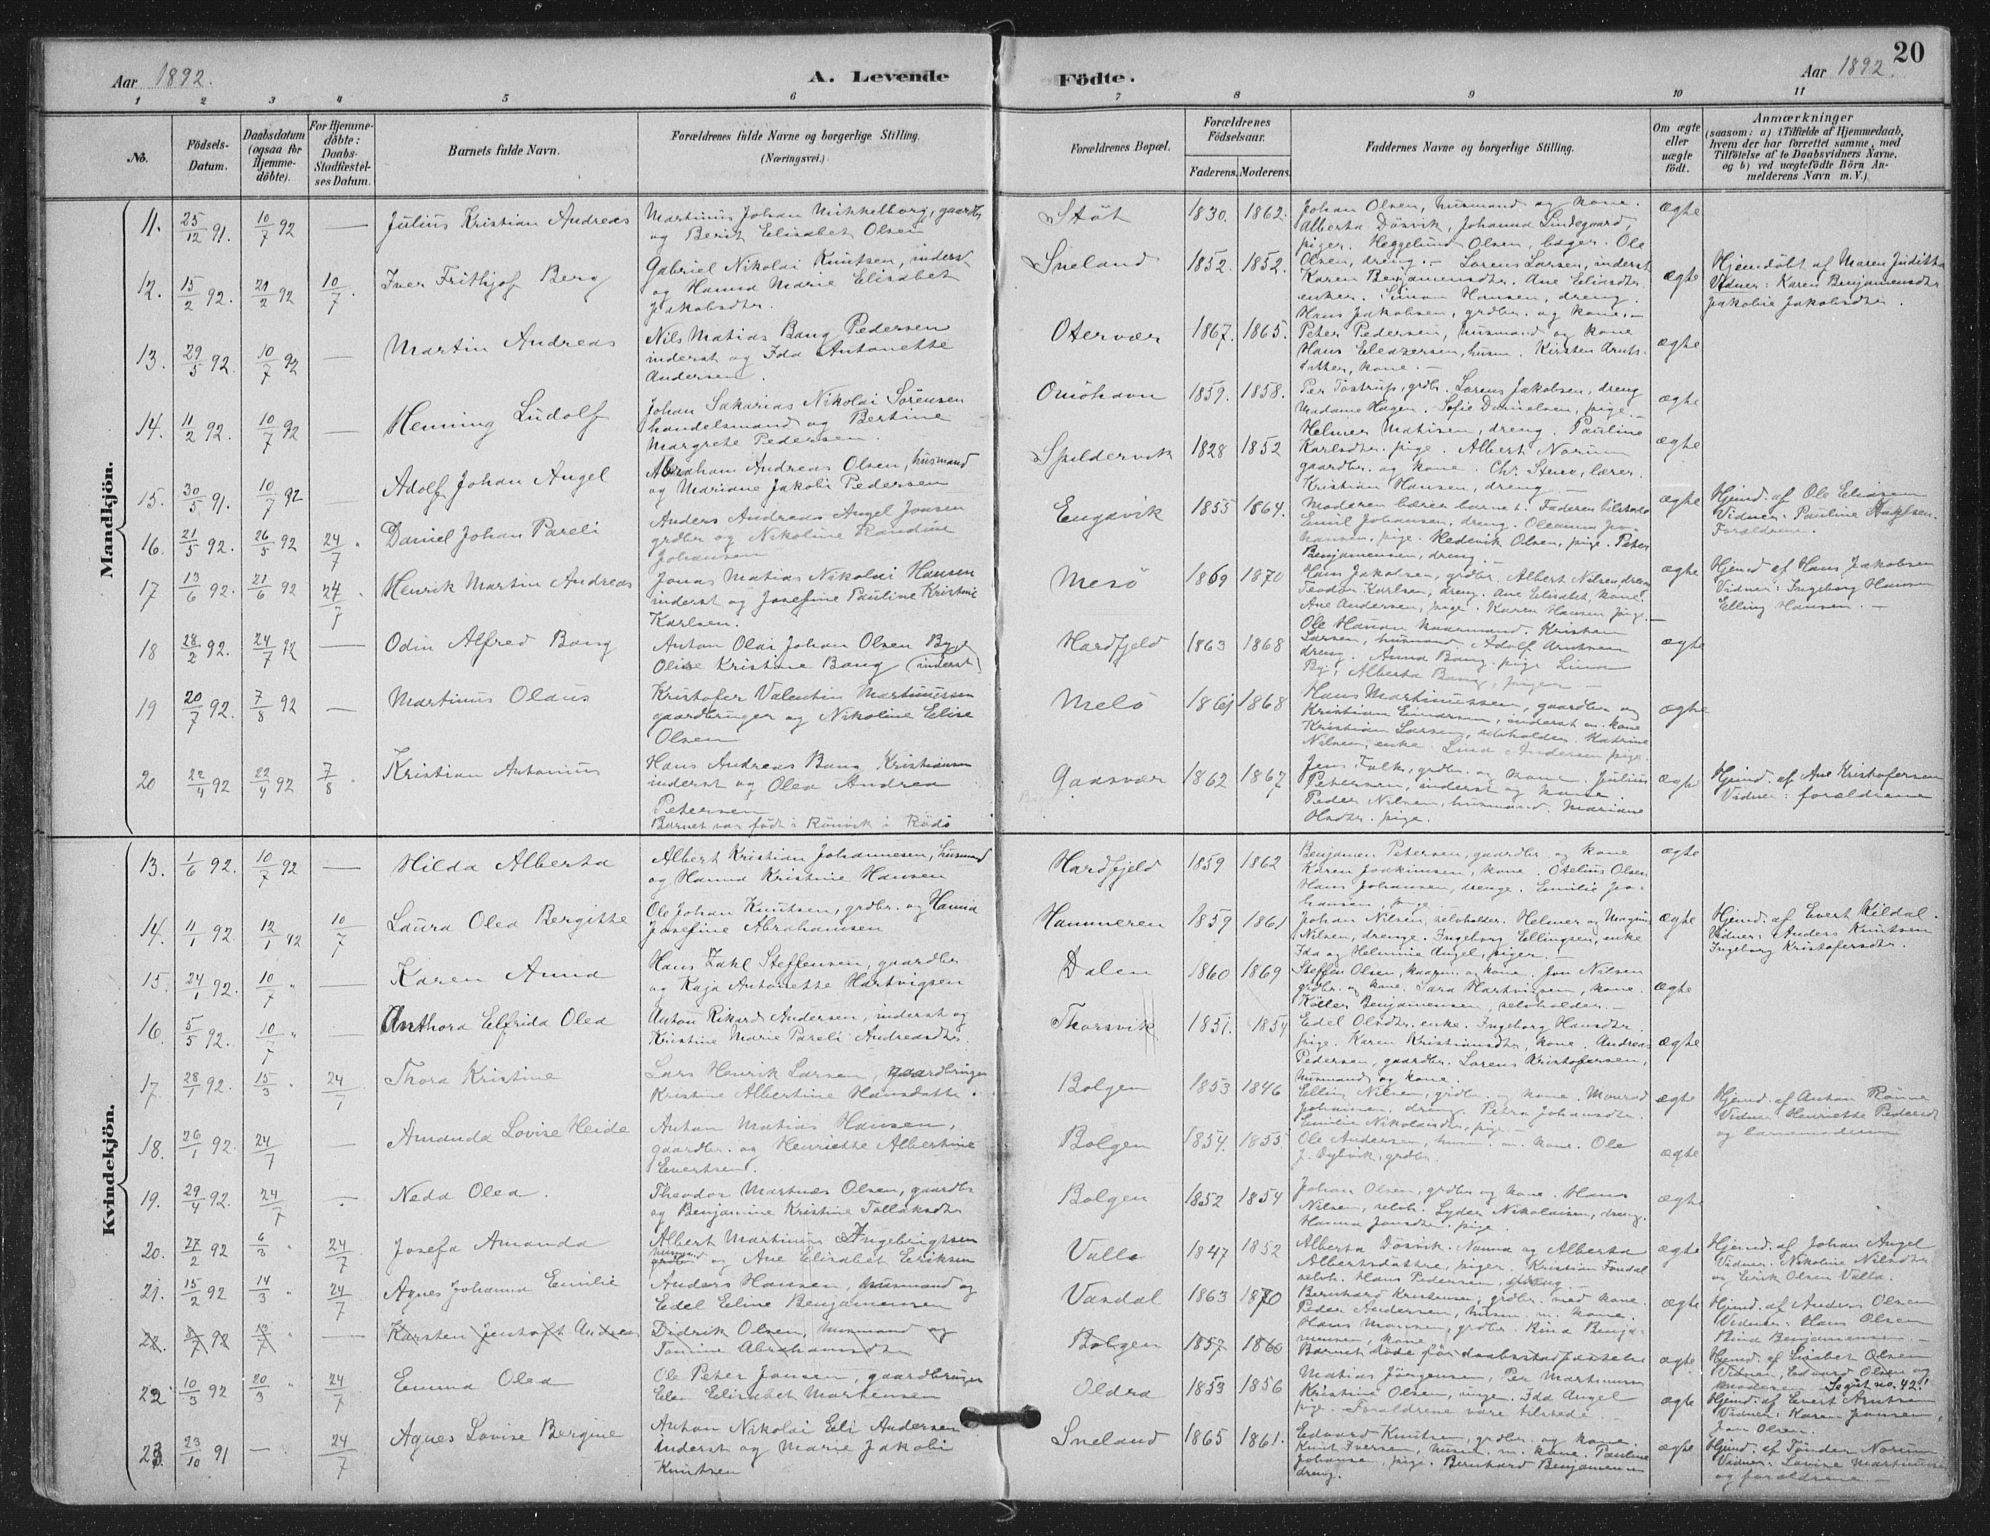 20
Aar 1892.
A. Levende
Födte.
Aar 1892.
1 2 3 4 5 6 7 8 9 10 11
No. Födsels-Datum. Daabsdatum (ogsaa for Hjemme-döbte). For Hjemme-döbte: Daabs-Stadfæstel-ses Datum. Barnets fulde Navn. Forældrenes fulde Navne og borgerlige Stilling. (Næringsvei.) Forældrenes Bopæl. Forældrenes Födselsaar. Faderens. Moderens. Faddernes Navne og borgerlige Stilling. Om ægte eller uægte födt. Anmærkninger (saasom: a) i Tilfælde af Hjemmedaab, hvem der har forrettet samme, med Tilföielse af to Daabsvidners Navne, og b) ved uægtefödte Börn An-melderens Navn m. V.)
Mandkjön.
11. 25/12 91. 10/7 92 — Julius Kristian Andreas
Martinus Johan Mikkelborg, gaardbr
og Berit Elisabet Olsen
Stöt 1830. 1862.
Johan Olsen, husmand og kone.
Alberta Dösvik, Johanna Lindegaard,
piger. Heggelund Olsen, bæger. Ole
Olsen, dreng. —
ægte
12. 15/2 92. 21/2 92 10/7. Iver Frithjof Berg
Gabriel Nikolai Knutsen, inderst
og Hanna Marie Elisabet
Jakobsdtr.
Sneland 1852. 1852.
Lorens Larsen, inderst
Karen Benjamensdtr. Ane Eliasdtr
enker. Simon Hansen, dreng.
Hans Jakobsen, grdbr. og kone. —
ægte
Hjemdöbt af Maren Juditha
Vidner: Karen Benjamensdtr
Jakobie Jakobsdtr.
13. 29/5 92. 10/7 92 — Martin Andreas
Nils Matias Bang Pedersen
inderst og Ida Antonette
Andersen.
Otervær 1867. 1865.
Peter Pedersen, husmand og kone
Hans Eleazersen, husm. Kirsten Arnts-
datter, kone. —
ægte
14. 11/2 92. 10/7 92 — Henning Ludolf
Johan Sakarias Nikolai Sörensen
handelsmand og Bertine
Margrete Pedersen.
Onöhavn 1859. 1858.
Per Tostrup, grdbr. Lorens Jakobsen, dreng
Madame Hagen. Sofie Danielsen, pige. —
ægte
15. 30/5 91. 10/7 92 — Adolf Johan Angel
Abraham Andreas Olsen, husmand
og Mariane Jakobi Pedersen
Spildervik 1828 1852
Helmer Matisen, dreng. Pauline
Karlsdtr. pige. Albert Norum
gaardbr. og kone. Chr. Steno, lærer.
Kristian Hansen, dreng —
ægte
16. 21/5 92. 26/5 92 24/7. Daniel Johan Pareli
Anders Andreas Angel Jonsen
grdbr og Nikoline Claudine
Johansen
Engavik 1855 1864.
Moderen bærer barnet. Faderen tilstede
Emil Johansen, dreng. Oleanna Jo-
hansen, pige. Hedevik Olsen, pige. Peter
Benjamensen, dreng
ægte
Hjemd. af Ole Eliasen
Vidner: Pauline
Forældrene.
17 13/6 92. 21/6 92 24/7. Henrik Martin Andreas
Jonas Matias Nikolai Hansen
inderst og Josefine Pauline Kristine
Karlsen.
Mesö 1869 1870
Hans Jakobsen, grdbr. Albert Nilsen, dreng
Teodor Karlsen, dreng. Ane Elisabet, kone.
Ane Andersen, pige. Karen Hansen pige. —
ægte
Hjemd af Hans Jakobsen
Vidner: Ingeborg Hansen
Elling Hansen. —
18 28/2 92. 24/7 92 — Odin Alfred Bang
Anton Olai Johan Olsen Byg
Olise Kristine Bang (inderst)
Hardfjeld 1863 1868
Kristian
Larsen, husmand. Adolf Arntsen
dreng. Anna Bang, pige Lina
By, Alberta Bang, piger —
ægte
19 20/7 92. 7/8 92 — Martinus Olaus
Kristofer Valentin Martinussen
gaardbruger og Nikoline Elise
Olsen
Melö 1861 1868
Hans Martinussen, gaardbr og
Kristian Einarsen, inderst m. kone
Kristian Larsen, selvholder. Katrine
Nilsen, enke. Lina Andersen pige.
ægte
20 22/4 92 22/4 92 7/8 Kristian Antonius
Hans Andreas Bang Kristiansen
inderst og Olea Andrea
Petersen
Barnet var födt i Rönvik i Rödö
Gaasvær 1862 1867
Jens Falk, grdbr. og kone. Julius
Petersen, inderst og kone
Peder Nilsen, husmand. Mariane
Olsdtr. pige.
ægte
Hjemd. af Ane Kristofersen
Vidner: forældrene
Kvindekjön.
13. 1/6 92. 10/7 92 — Hilda Alberta
Albert Kristian Johannesen, husmand
og Hanna Kristine Hansen
Hardfjeld 1859 1862
Benjamen Petersen, gaardbr og kone
Karen Joakimsen, kone. Otelius Olsen
Hans Johansen, drenge. Emilie Jo-
hansen, pige —
ægte
14. 11/1 92. 12/1 92 10/7 Laura Olea Bergitte
Ole Johan Knutsen, grdbr. og Hanna
Josefine Abrahamsen
Hammeren 1859 1861
Johan Nilsen, selvholder. Helmer og Magnus
Nilsen, drenge. Ingeborg Ellingsen, enke
Ida og Helmine Angel, piger. —
ægte
Hjemd. af Evert Kildal.
Vidner: Anders Knutsen
Ingeborg Kristofersdtr.
15. 24/1 92. 10/7 " — Karen Anna
Hans Zahl Steffensen, gaardbr
og Kaja Antonette Hartvigsen
Dalen 1860 1869
Steffen Olsen, kaarm. og kone. Jon Nilsen
grdbr. og kone. Sara Hartvigsen, kone.
Köller Benjamensen, selvholder. —
ægte
16. 5/5 92. 10/7 " — Anthora Elfrida Olea
Anton Rikard Andersen, inderst og
Kristine Marie Pareli Andreasdtr.
Thorsvik 1851. 1854
Edel Olsdtr. enke. Ingeborg Hansdtr.
pige. Karen Kristiansdtr, kone. Andreas
Pedersen, gaardbr. Lorens Kristofersen,
husmand og kone.
ægte
17. 28/1 92. 15/3 " 24/7 Thora Kristine
Lars Henrik Larsen, gaardbruger
Kristine Albertine Hansdatter.
Bolgen 1853 1846
Elling Nilsen, grdbr og kone. Monrad
Johansen, dreng. Petra Johansdtr.
Emilie Nikolaisdtr, pige —
ægte
Hjemd. af Anton Rönne
Vidner Henriette
og barnemoderen
18. 26/1 92. 24/7 — Amanda Lovise Heide
Anton Matias Hansen,
gaardbr. og Henriette Albertine
Evertsen.
Bolgen 1854. 1855.
Ole Andersen, husm. m. kone. Ole
J. Dybvik, grdbr.
ægte
19. 29/4 92. 24/7 — Neda Olea.
Theodor Martnæs Olsen, gaardbr
og Benjamine Kristine Tollaksdtr
Bolgen 1852 1854
Johan Olsen, grdbr og kone. Hans
Nilsen, selvh. Lyder Nikolaisen, dreng.
Hanna Jonsdtr. pige.
ægte
20. 27/2 92 6/3 " 24/7 Josefa Amanda
Albert Martinus Ingebrigtsen
husmand
grdbr og Ane Elisabet Eriksen
Valla 1847 1852
Alberta Dösvik. Nanna og Alberta
Albertsdattre, piger. Kristian Fondal
selvh. Hans Pedersen, dreng
ægte
Hjemd. af Johan Angel
Vidner. Nikoline Nilsdtr
og Erik Olsen Valla.
21. 15/2 92 14/3 " 24/7 Agnes Johanna Emilie
Anders Hansen, husmand og
Edel Eline Benjamensen
Vasdal 1863 1870
Bernhard Kristensen, grdbr. med kone.
Peder Andersen, husm m. kone.
Hans Monsen, grdbr. Bina Benja-
mensen, kone
ægte
Hjemd. af Anders Olsen
Vidner: Hans Olsen
Bina Benjamensen —
22. 92 " — Karsten Jentoft Andreas
Didrik Olsen, husmand og
Tomine Abrahamsdtr
Bolgen 1857 1860
Barnet döde för daabsstadfæstelse
ægte
Hjemd. af Lisabet Olsen
Vidner, Edvard Olsen og
moderen. 42!
22 10/3 92 20/3 " 24/7 Emma Olea
Ole Peter Jansen, gaardbruger
Elen Elisabet Mortensen
Oldra 1853 1856
Matias Jörgensen, Per Martinussen
Kristine Olsen, unge. Ida Angel
pige. Forældrene vare tilstede
ægte
Hjemd. af Evert Arntsen
Vidner: Karen Jensen,
Jon Olsen.
23 23/10 91 — 24/7 Agnes Lovise Bergine
Anton Nikolai Eli Andersen
inderst og Marie Jakobi
Knutsen
Sneland 1865 1861.
Edvard Knutsen, grdbr. og kone.
Knut Iversen, husm. m. kone. Pauline
Johansen, pige. Bernhard Benjamensen
dreng.
ægte
Hjemd. af Tönder Norum
Vidner: Lovise Martinussen
og forældrene. —